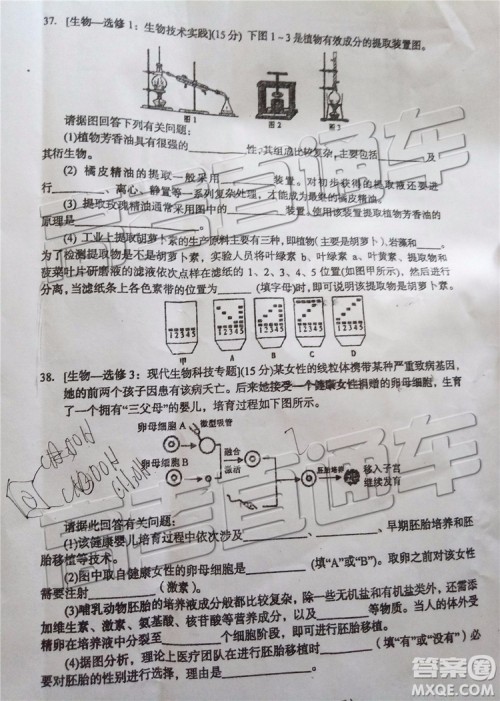 37. [生物—选修1：生物技术实践](15分) 下图1－3是植物有效成分的提取装置图。
图1
图2
图3
请据图回答下列有关问题：
(1)植物芳香油具有很强的______性，其组成成分比较复杂，主要包括______及
其衍生物。
(2) 橘皮精油的提取一般采用______装置。对初步获得的提取液还要进
行______、离心、静置等一系列复杂处理，才能成为最终的橘皮精油。
(3) 提取玫瑰精油通常采用图中的______装置，利用该装置提取植物芳香油的
原理是______。
(4) 工业上提取胡萝卜素的生产原料主要有三种，即植物(主要是胡萝卜)、岩藻和____。为
了检测提取物是不是胡萝卜素，实验人员将叶绿素b、叶绿素a、叶黄素、提取物以及
菠菜叶片研磨液的滤液依次点样在滤纸的1、2、3、4、5位置(如图甲所示)，然后进行
分离，当滤纸条上各色素带的位置为______(填字母)时，即可说明该提取物是胡萝卜素。
12345
12345
12345
12345
12345
甲
A
B
C
D
38. [生物—选修3：现代生物科技专题](15分) 某女性的线粒体携带某种严重致病基因，
她的前两个孩子因患有该病夭亡。后来她接受一个健康女性捐赠的卵母细胞，生育
了一个拥有“三父母”的婴儿，培育过程如下图所示。
卵母细胞A
微型吸管
卵母细胞B
融合
激活
胚胎培养
移入子宫
继续发育
请据此回答有关问题：
(1)该健康婴儿培育过程中依次涉及______、______、早期胚胎培养和胚
胎移植等技术。
(2)图中取自健康女性的卵母细胞是______(填“A”或“B”)。取卵之前对该女性
需要注射______(激素)。
(3)哺乳动物胚胎的培养液成分一般都比较复杂，除一些无机盐和有机盐外，还需要添
加维生素、激素、氨基酸、核苷酸等营养成分，以及______等物质。当人的体外受精
卵在培养液中分裂到______个细胞阶段，即可进行胚胎移植。
(4)据图分析，理论上医疗团队在进行胚胎移植时______(填“有”或“没有”) 必
要对胚胎的性别进行选择，理由是______。
高考直通车
高考直通车
答案圈
MXQE.COM